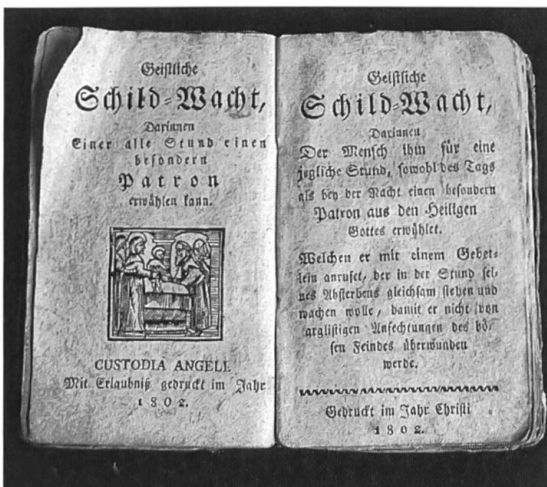 Geistliche
Schild-Wacht,
Darinnen
Einer alle Stund einen
besondern
Patron
erwählen kann.
CUSTODIA ANGELI.
Mit Erlaubniß gedruckt im Jahr
1802.
Geistliche
Schild-Wacht,
Darinnen
Der Mensch ihm für eine
jegliche Stund, sowohl des Tags
als bey der Nacht einen besondern
Patron aus den Heiligen
Gottes erwählet.
Welchen er mit einem Gebet-
lein anrufet, der in der Stund sei-
nes Absterbens gleichsam stehen und
wachen wolle, damit er nicht von
arglistigen Ansechtungen des bö-
sen Feindes überwunden
werde.
Gedruckt im Jahr Christi
1802.